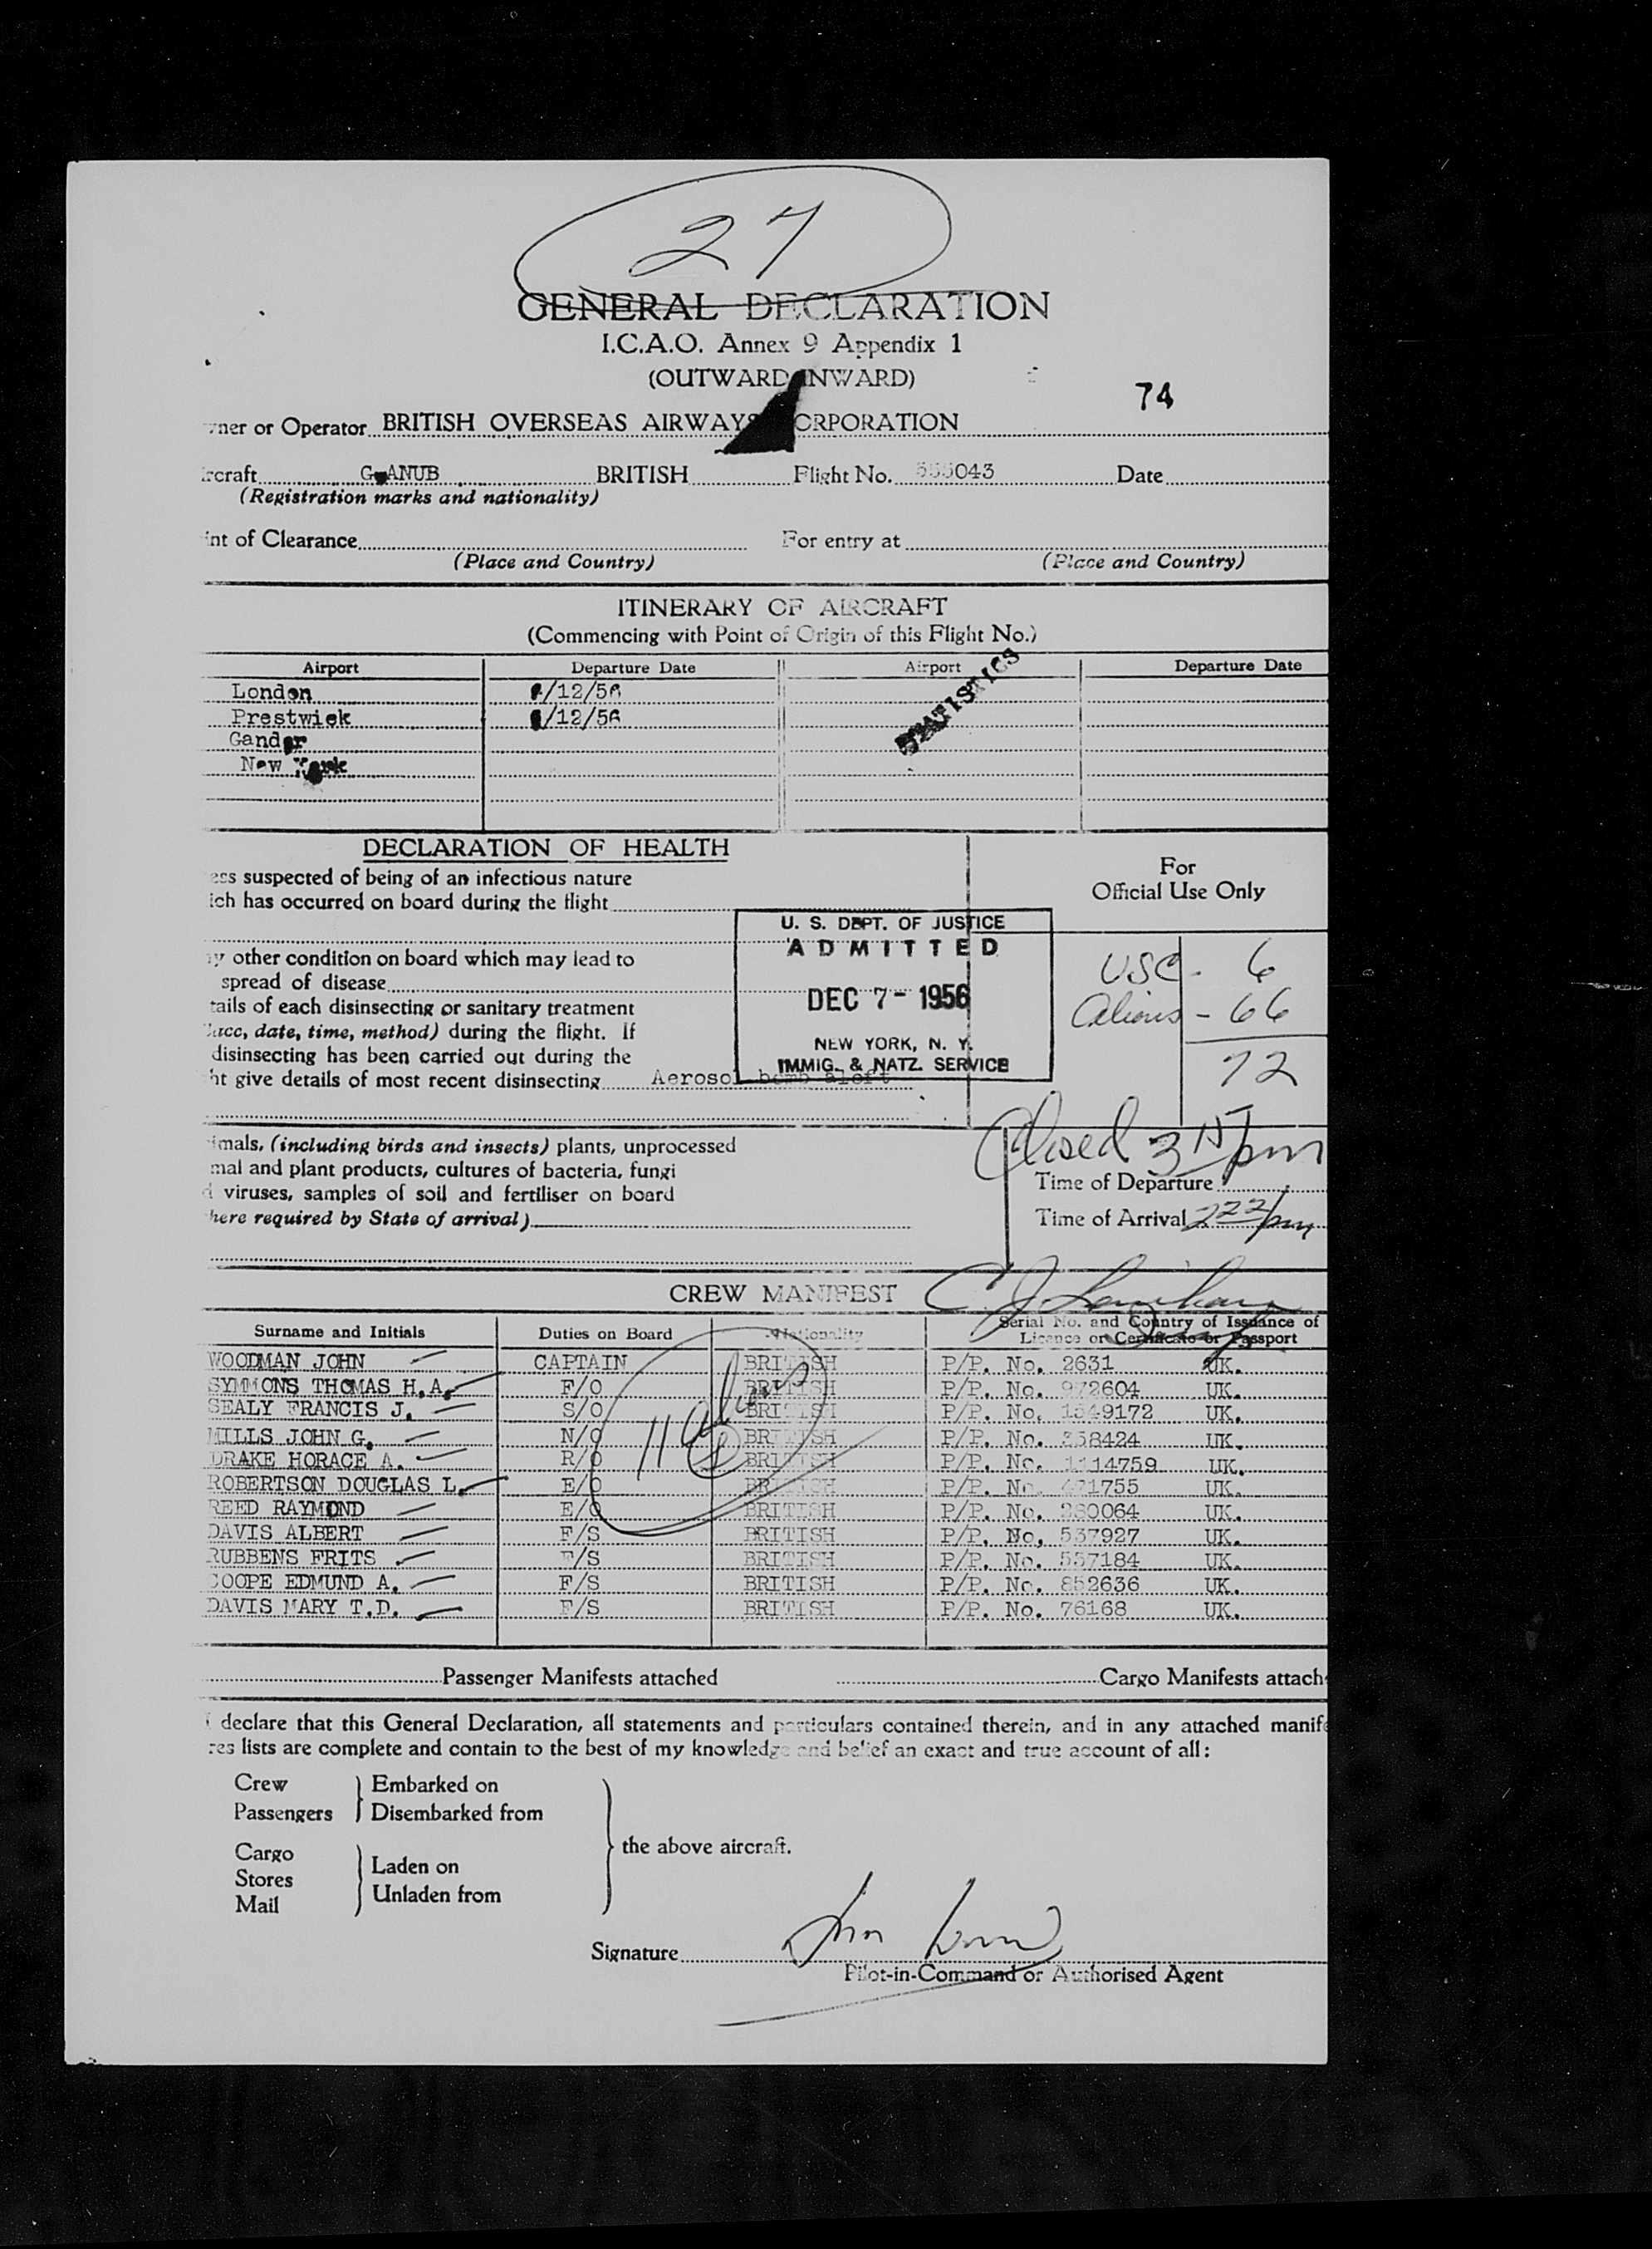 27
GENERAL DECLARATION
I.C.A.O. Annex 9 Appendix 1
(OUTWARD INWARD)
74
ner or Operator BRITISH OVERSEAS AIRWAYS CORPORATION
rcraft G-ANUB BRITISH Flight No. 555043 Date
(Registration marks and nationality)
int of Clearance For entry at
(Place and Country) (Place and Country)
ITINERARY OF AIRCRAFT
(Commencing with Point of Origin of this Flight No.)
Airport Departure Date Airport Departure Date
STATISTICS
London /12/56
Prestwick /12/56
Gander
New York
DECLARATION OF HEALTH
For
Official Use Only
ess suspected of being of an infectious nature
ich has occurred on board during the flight
y other condition on board which may lead to
spread of disease
tails of each disinsecting or sanitary treatment
lace, date, time, method) during the flight. If
disinsecting has been carried out during the
ht give details of most recent disinsecting Aerosol bomb aloft
U. S. DEPT. OF JUSTICE
ADMITTED
DEC 7 - 1956
NEW YORK, N. Y.
IMMIG. & NATZ. SERVICE
USC - 6
Aliens - 66
72
imals, (including birds and insects) plants, unprocessed
mal and plant products, cultures of bacteria, fungi
d viruses, samples of soil and fertiliser on board
here required by State of arrival)
Closed 3 15 pm
Time of Departure
Time of Arrival 2 22 pm
CREW MANIFEST
Surname and Initials Duties on Board Nationality Serial No. and Country of Issuance of
Licence or Certificate or Passport
WOODMAN JOHN CAPTAIN BRITISH P/P. No. 2631 UK.
SYMMONS THOMAS H.A. F/O BRITISH P/P. No. 972604 UK.
SEALY FRANCIS J. S/O BRITISH P/P. No. 1549172 UK.
MILLS JOHN G. N/O BRITISH P/P. No. 358424 UK.
DRAKE HORACE A. R/O BRITISH P/P. No. 1114759 UK.
ROBERTSON DOUGLAS L. E/O BRITISH P/P. No. 421755 UK.
REED RAYMOND E/O BRITISH P/P. No. 380064 UK.
DAVIS ALBERT F/S BRITISH P/P. No. 537927 UK.
RUBBENS FRITS F/S BRITISH P/P. No. 557184 UK.
COOPE EDMUND A. F/S BRITISH P/P. No. 852636 UK.
DAVIS MARY T.D. F/S BRITISH P/P. No. 76168 UK.
11
Passenger Manifests attached Cargo Manifests attach
I declare that this General Declaration, all statements and particulars contained therein, and in any attached manife
res lists are complete and contain to the best of my knowledge and belief an exact and true account of all:
Crew Embarked on
Passengers Disembarked from
the above aircraft.
Cargo
Stores Laden on
Mail Unladen from
Signature
Pilot-in-Command or Authorised Agent